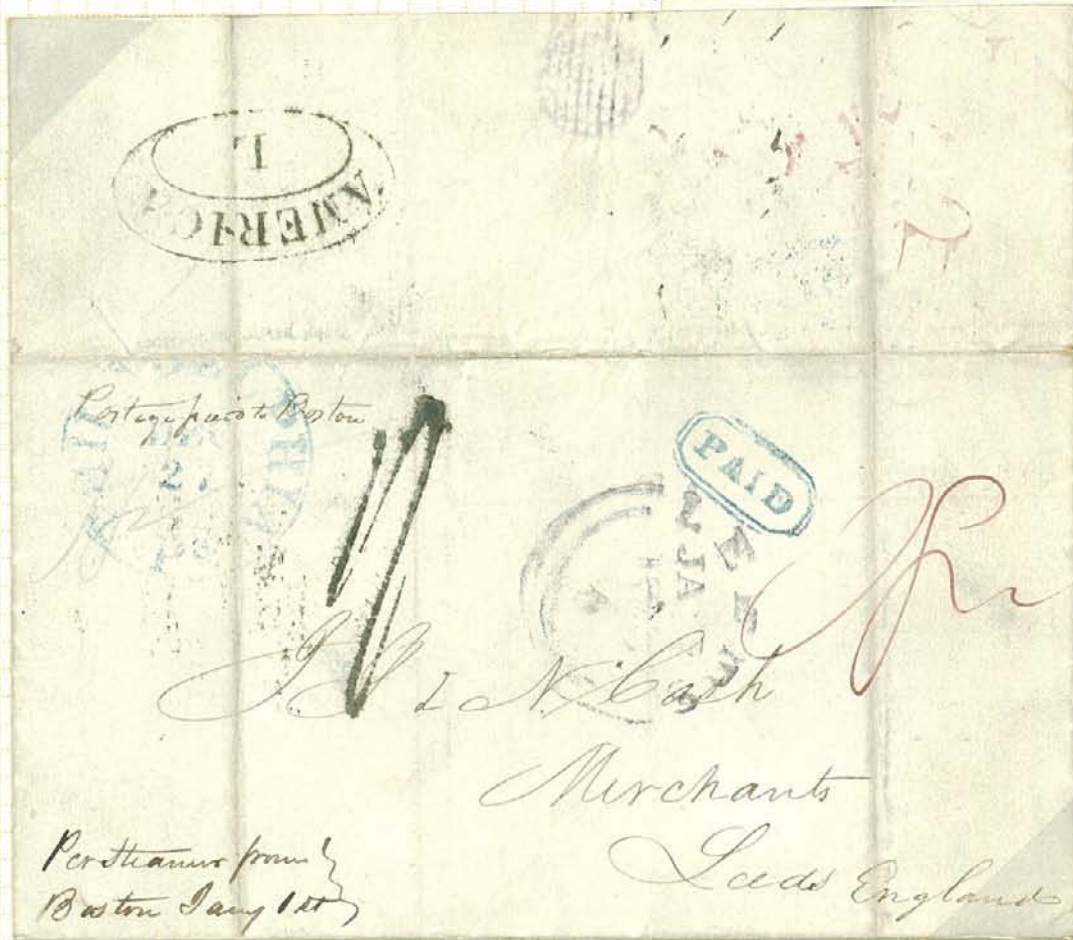 AMERICA
L
Postage paid to Boston
27
PAID
LEEDS
JA
J & N Cash
Merchants
Leeds England
Per Steamer from
Boston Jany 1st